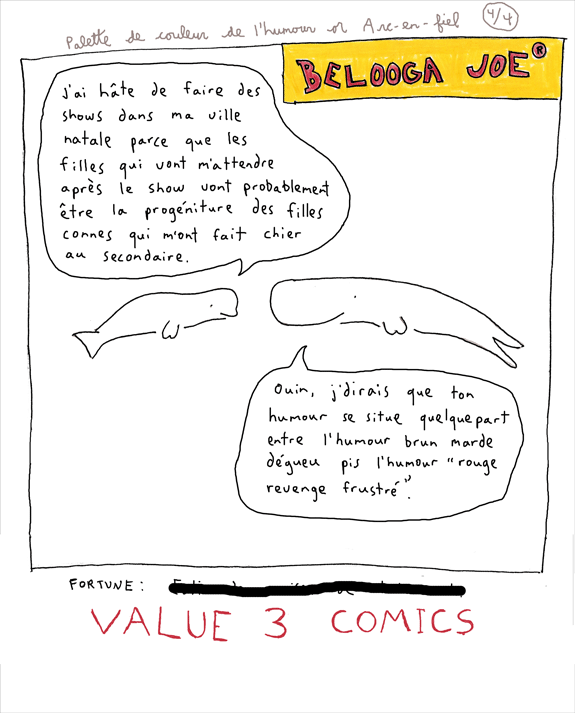 Palette de couleur de l'humour or Arc-en-fiel 4/4
BELOOGA JOE®
J'ai hâte de faire des
shows dans ma ville
natale parce que les
filles qui vont m'attendre
après le show vont probablement
être la progéniture des filles
connes qui m'ont fait chier
au secondaire.
Ouin, j'dirais que ton
humour se situe quelque part
entre l'humour brun marde
dégueu pis l'humour "rouge
revenge frustré".
FORTUNE:
VALUE 3 COMICS